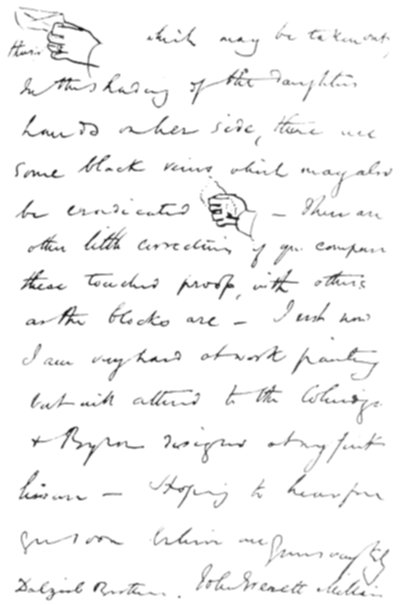 which may be taken out,
there
In the shading of the daughters
hands on her side, there are
some black veins which may also
be eradicated — There are
other little corrections if you compare
these touched proofs, with others
as the blocks are — Just now
I am very hard at work painting
but will attend to the Coleridge
& Byron designs at my first
leisure — Hoping to hear from
you soon believe me
yours very truly
Dalziel Brothers. John Everett Millais